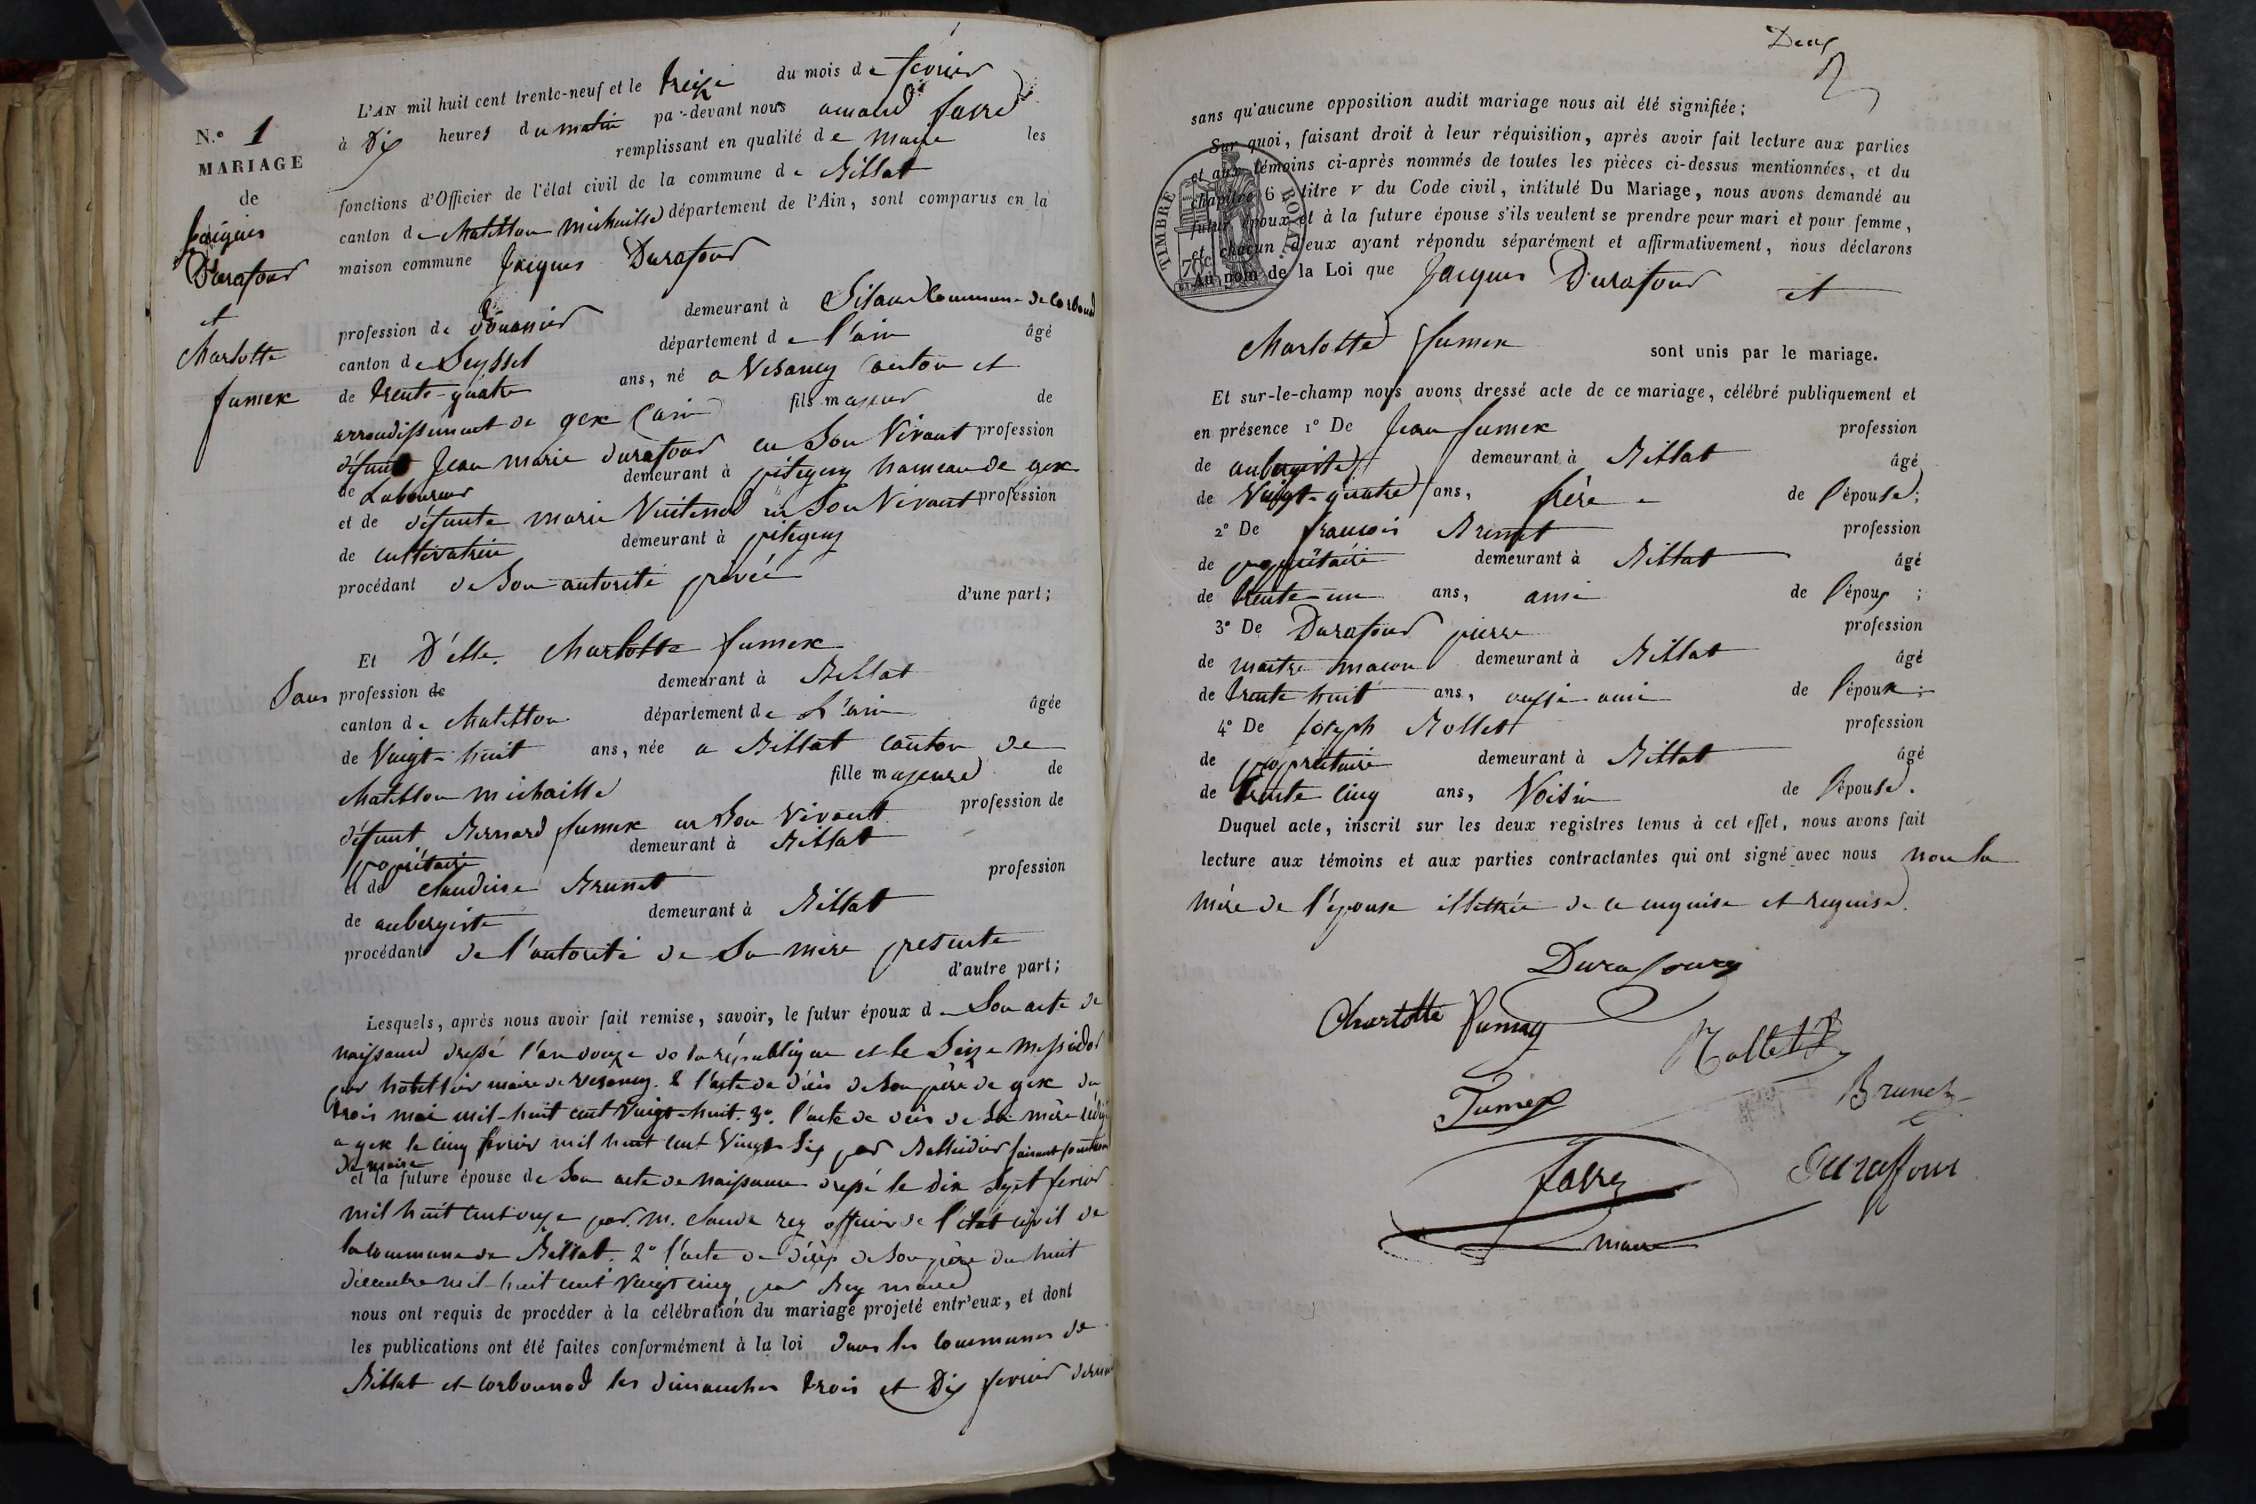 1
L'AN mil huit cent trente-neuf et le treize du mois de fevrier
à Dix heures du matin par-devant nous amand favre
remplissant en qualité de Maire les
fonctions d'Officier de l'état civil de la commune de Billat
canton de chatillon michaille département de l'Ain, sont comparus en la
maison commune Jacques Durafour
profession de Douanier demeurant à Silans Commune de Corbonod
canton de Seyssel département de l'ain âgé
de trente-quatre ans, né a Vesancy canton et
arrondissement de gex (ain) fils majeur de
défunt Jean marie durafour en Son Vivant profession
de Laboureur demeurant à pitegny hameau de gex
et de défunte marie en Son Vivant profession
de cultivatrice demeurant à pitegny
procédant de Son autorité privée
d'une part;
N.º 1
MARIAGE
de
Jacques
Durafour
et
Charlotte
fumex
Et D'elle. Charlotte fumex
Sans profession de demeurant à Billat
canton de Chatillon département de L'ain âgée
de Vingt-huit ans, née a Billat canton de
chatillon michaille fille majeure de
défunt Bernard fumex en Son Vivant profession de
propriétaire demeurant à Billat
et de claudine Brunet profession
de aubergiste demeurant à Billat
procédant de l'autorité de Sa mère présente
d'autre part;
Lesquels, après nous avoir fait remise, savoir, le futur époux de Son acte de
naissance dressé l'an douze de la république et le Seize Messidor
par maire de Vesancy. 2 l'acte de décès de Son père de gex du
trois mai mil-huit cent Vingt-huit. 3º. l'acte de décès de Sa mère
a gex le cinq fevrier mil huit cent Vingt Six par faisant fonction
de maire
et la future épouse de Son acte de naissance dressé le dix Sept fevrier
mil huit cent onze par. M. Claude rey officier de l'état civil de
la commune de Billat. 2º l'acte de décès de Son père du huit
décembre mil-huit cent Vingt cinq par Rey maire
nous ont requis de procéder à la célébration du mariage projeté entr'eux, et dont
les publications ont été faites conformément à la loi dans les communes de
Billat et Corbonod les dimanches trois et Dix fevrier dernier
Deux
2
sans qu'aucune opposition audit mariage nous ait été signifiée;
Sur quoi, faisant droit à leur réquisition, après avoir fait lecture aux parties
et aux témoins ci-après nommés de toutes les pièces ci-dessus mentionnées, et du
chapitre 6 titre V du Code civil, intitulé Du Mariage, nous avons demandé au
futur époux et à la future épouse s'ils veulent se prendre pour mari et pour femme,
et chacun d'eux ayant répondu séparément et affirmativement, nous déclarons
Au nom de la Loi que Jacques Durafour et
Charlotte fumex sont unis par le mariage.
TIMBRE ROYAL
Et sur-le-champ nous avons dressé acte de ce mariage, célébré publiquement et
en présence 1º De Jean fumex profession
de aubergiste demeurant à Billat âgé
de Vingt-quatre ans, frère de l'épouse;
2º De francois Brunet profession
de propriétaire demeurant à Billat âgé
de trente-un ans, ami de l'époux;
3º De Durafour pierre profession
de maitre macon demeurant à Billat âgé
de trente huit ans, aussi ami de l'époux;
4º De Joseph Rollet profession
de propriétaire demeurant à Billat âgé
de trente cinq ans, Voisin de l'épouse.
Duquel acte, inscrit sur les deux registres tenus à cet effet, nous avons fait
lecture aux témoins et aux parties contractantes qui ont signé avec nous non la
mère de l'épouse illettrée de ce enquise et requise.
Durafourg
Charlotte fumex
Rollet
Fumex
Brunet
Favre
Duraffour
maire